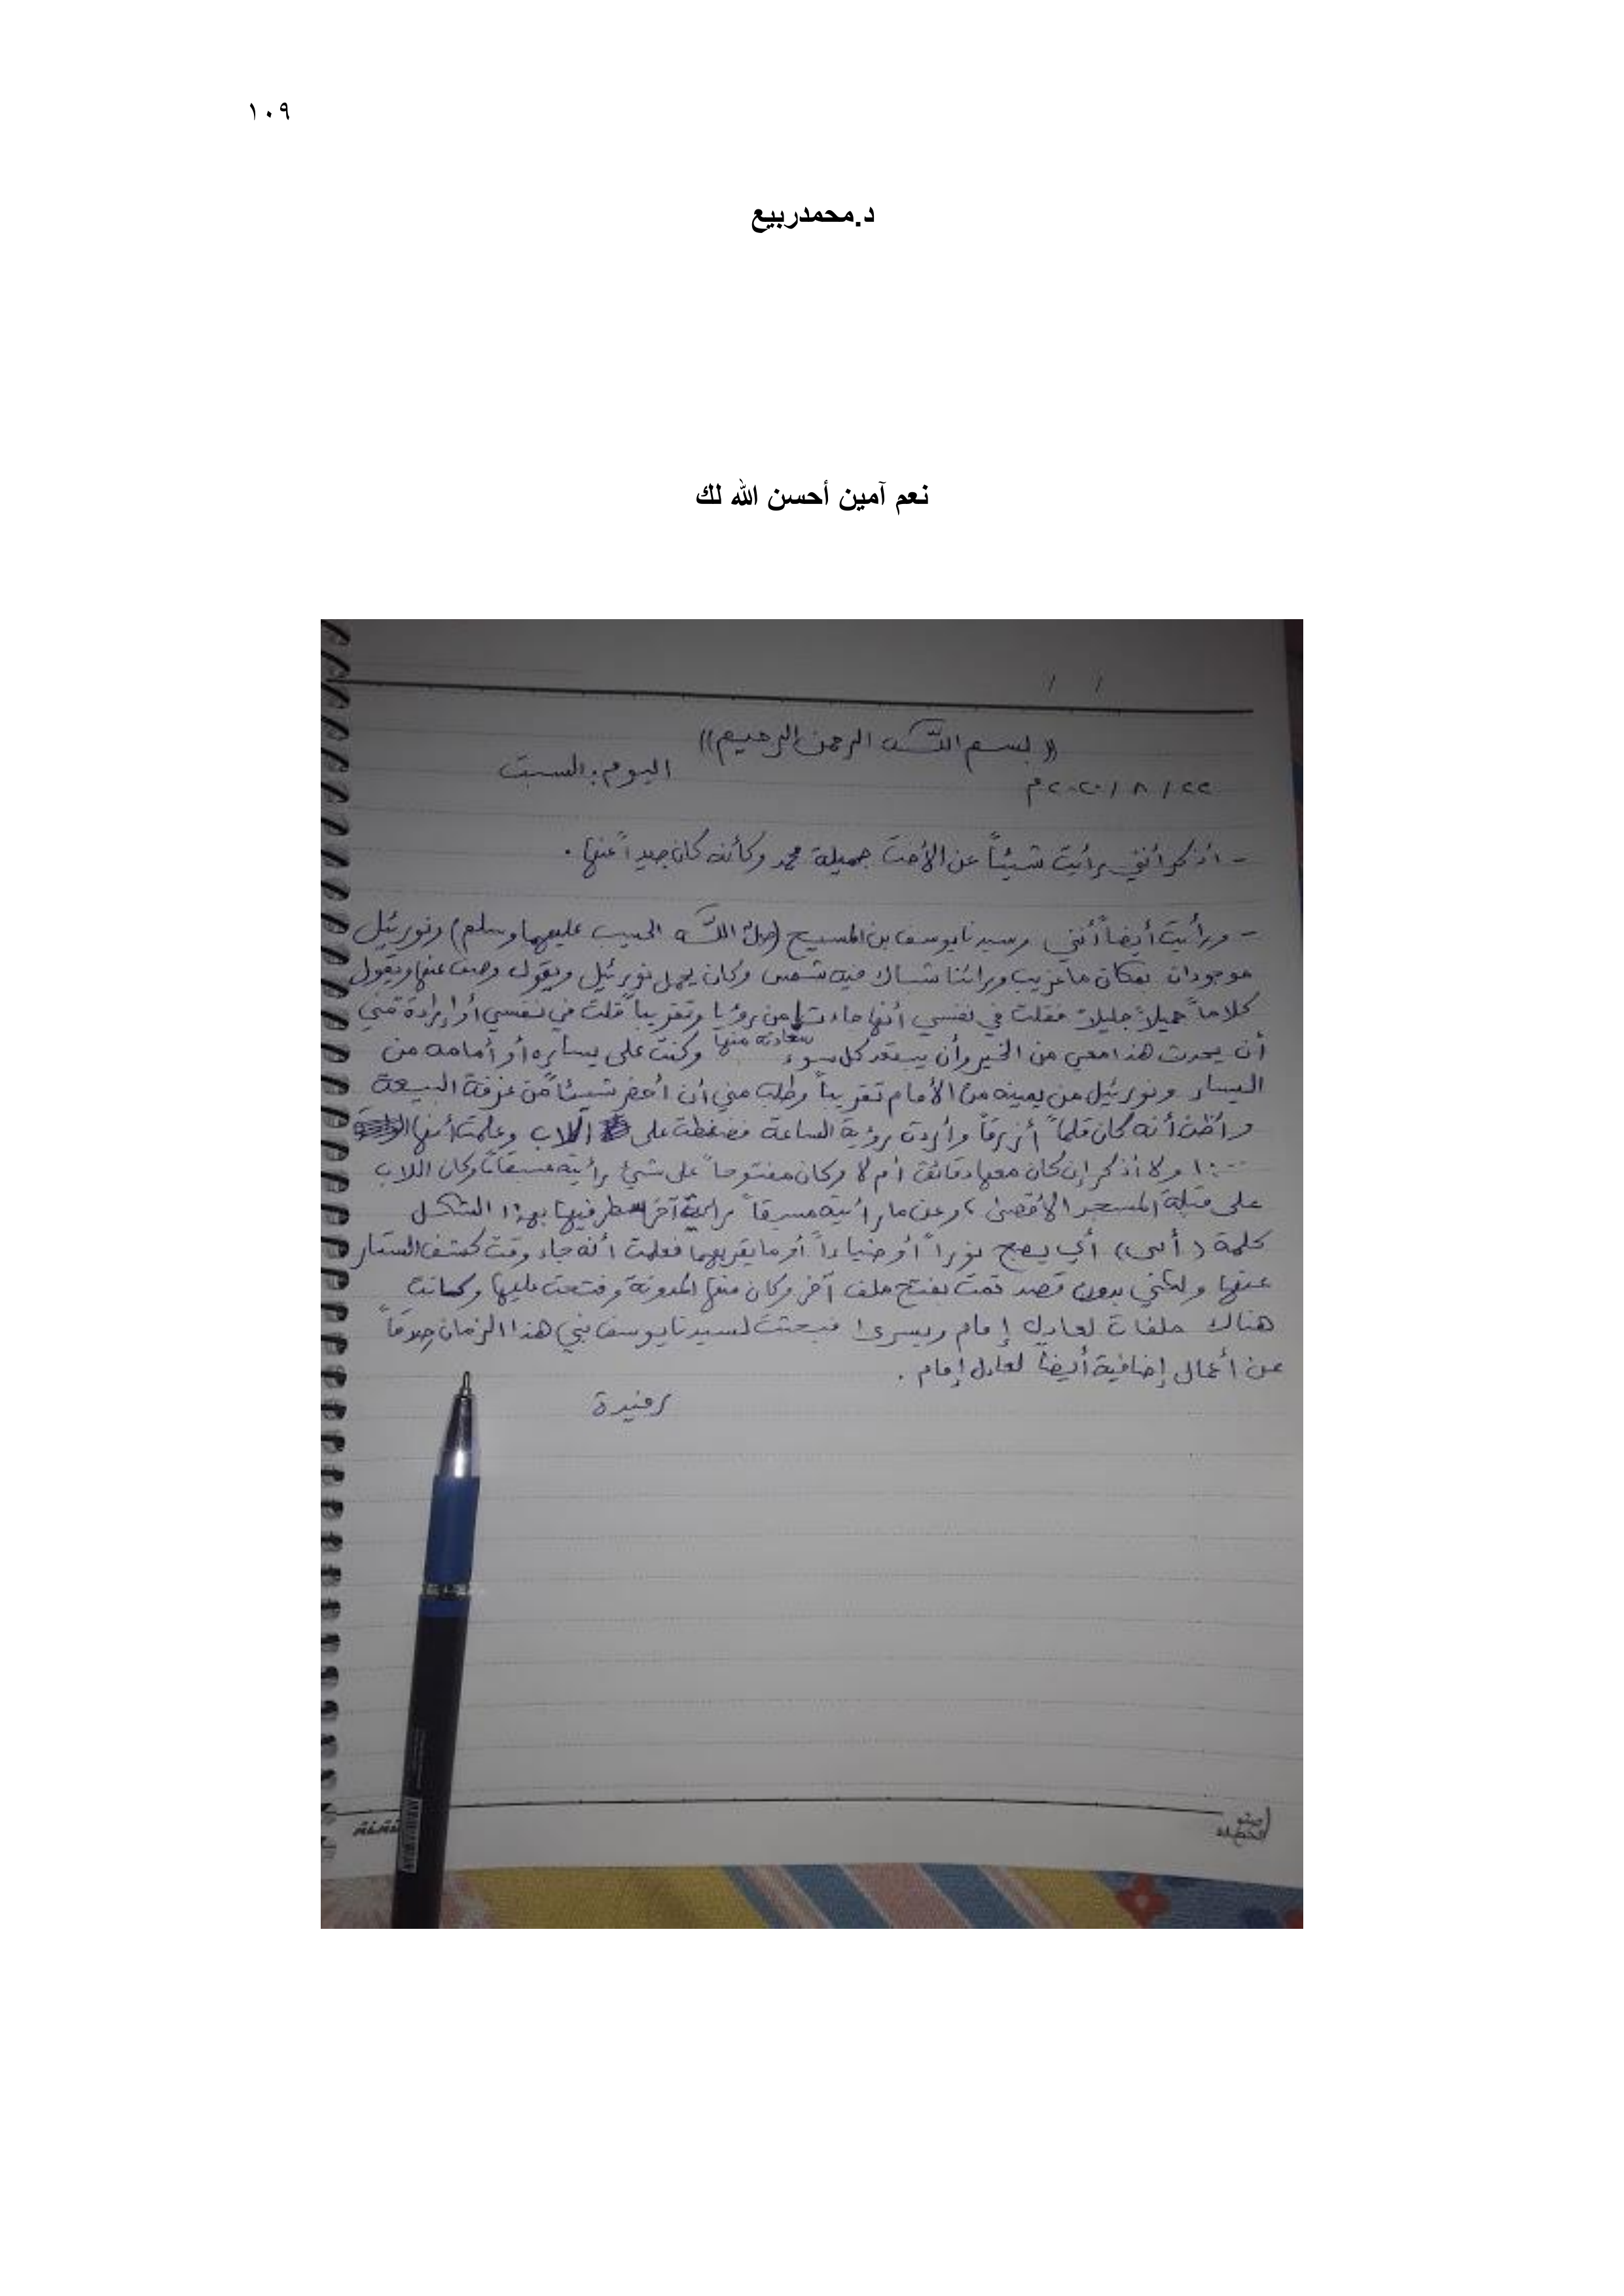 ١٠٩
د.محمدربيع
نعم آمين أحسن الله لك
/ /
((بسم اللـه الرحمن الرحيم))
٢٢ / ٨ / ٢٠٢٠م اليوم: السبت
- أذكر أنني رأيت شيئاً عن الأخت جميلة محمد وكأنه كان جيداً عنها.
- ورأيت أيضاً أنني وسيدنا يوسف بن المسيح (صلى اللـه الحبيب عليهما وسلم) ونورئيل
موجودان بمكان ما غريب ورائنا شباك فيه شمس وكان يحمل نورئيل ويقول وصف عنها ويقول
كلاماً جميلاً جليلاً فقلت في نفسي أنها جاءت من رؤيا وتقريباً قلت في نفسي أو إرادة مني
أن يحدث هذا معي من الخير وأن يبتعد كل سوء سعادته منها وكنت على يساره أو أمامه من
اليسار ونورئيل من يمينه من الأمام تقريباً وطلب مني أن أحضر شيئاً من غرفة البيعة
وأظن أنه كان قلماً أزرقاً وأردت رؤية الساعة فضغطت على اللاب وعلمت أنها
١٠:٠٠ ولا أذكر إن كان معها دقائق أم لا وكان مفتوحاً على شيئ رأيته مسبقاً وكان اللاب
على قبلة المسجد الأقصى، وعن ما رأيته مسبقاً رأيت آخر سطر فيها بهذا الشكل
كلمة ( ) أي يصبح نوراً أو ضياءاً أو ما يقربهما فعلمت أنه جاء وقت كشف الستار
عنها ولكنني بدون قصد قمت بفتح ملف آخر وكان منها المدونة وفتحت عليها وكانت
هناك ملفات لعادل إمام ويسرا فبحثت لسيدنا يوسف نبي هذا الزمان صدقاً
عن أعمال إضافية أيضاً لعادل إمام .
رفيدة